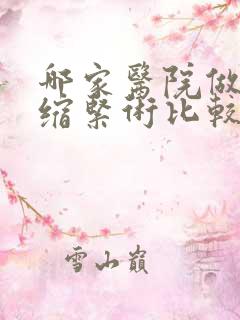 哪家醫院做
缩緊術比較
雪山巔